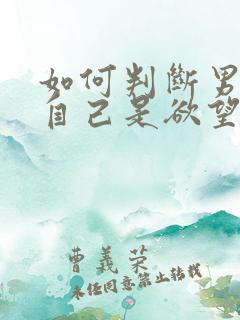 如何判斷男
自己是欲望
曹義榮
未經同意禁止轉載